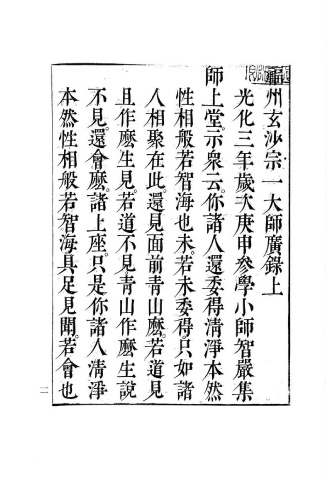 州玄沙宗一大師廣錄上
光化三年歲次庚申參學小師智嚴集
師上堂示衆云你諸人還委得清淨本然
性相般若智海也未若未委得只如諸
人相聚在此還見面前靑山麼若道見
且作麼生見若道不見靑山作麼生說
不見還會麼諸上座只是你諸人淸淨
本然性相般若智海具足見聞若會也
二